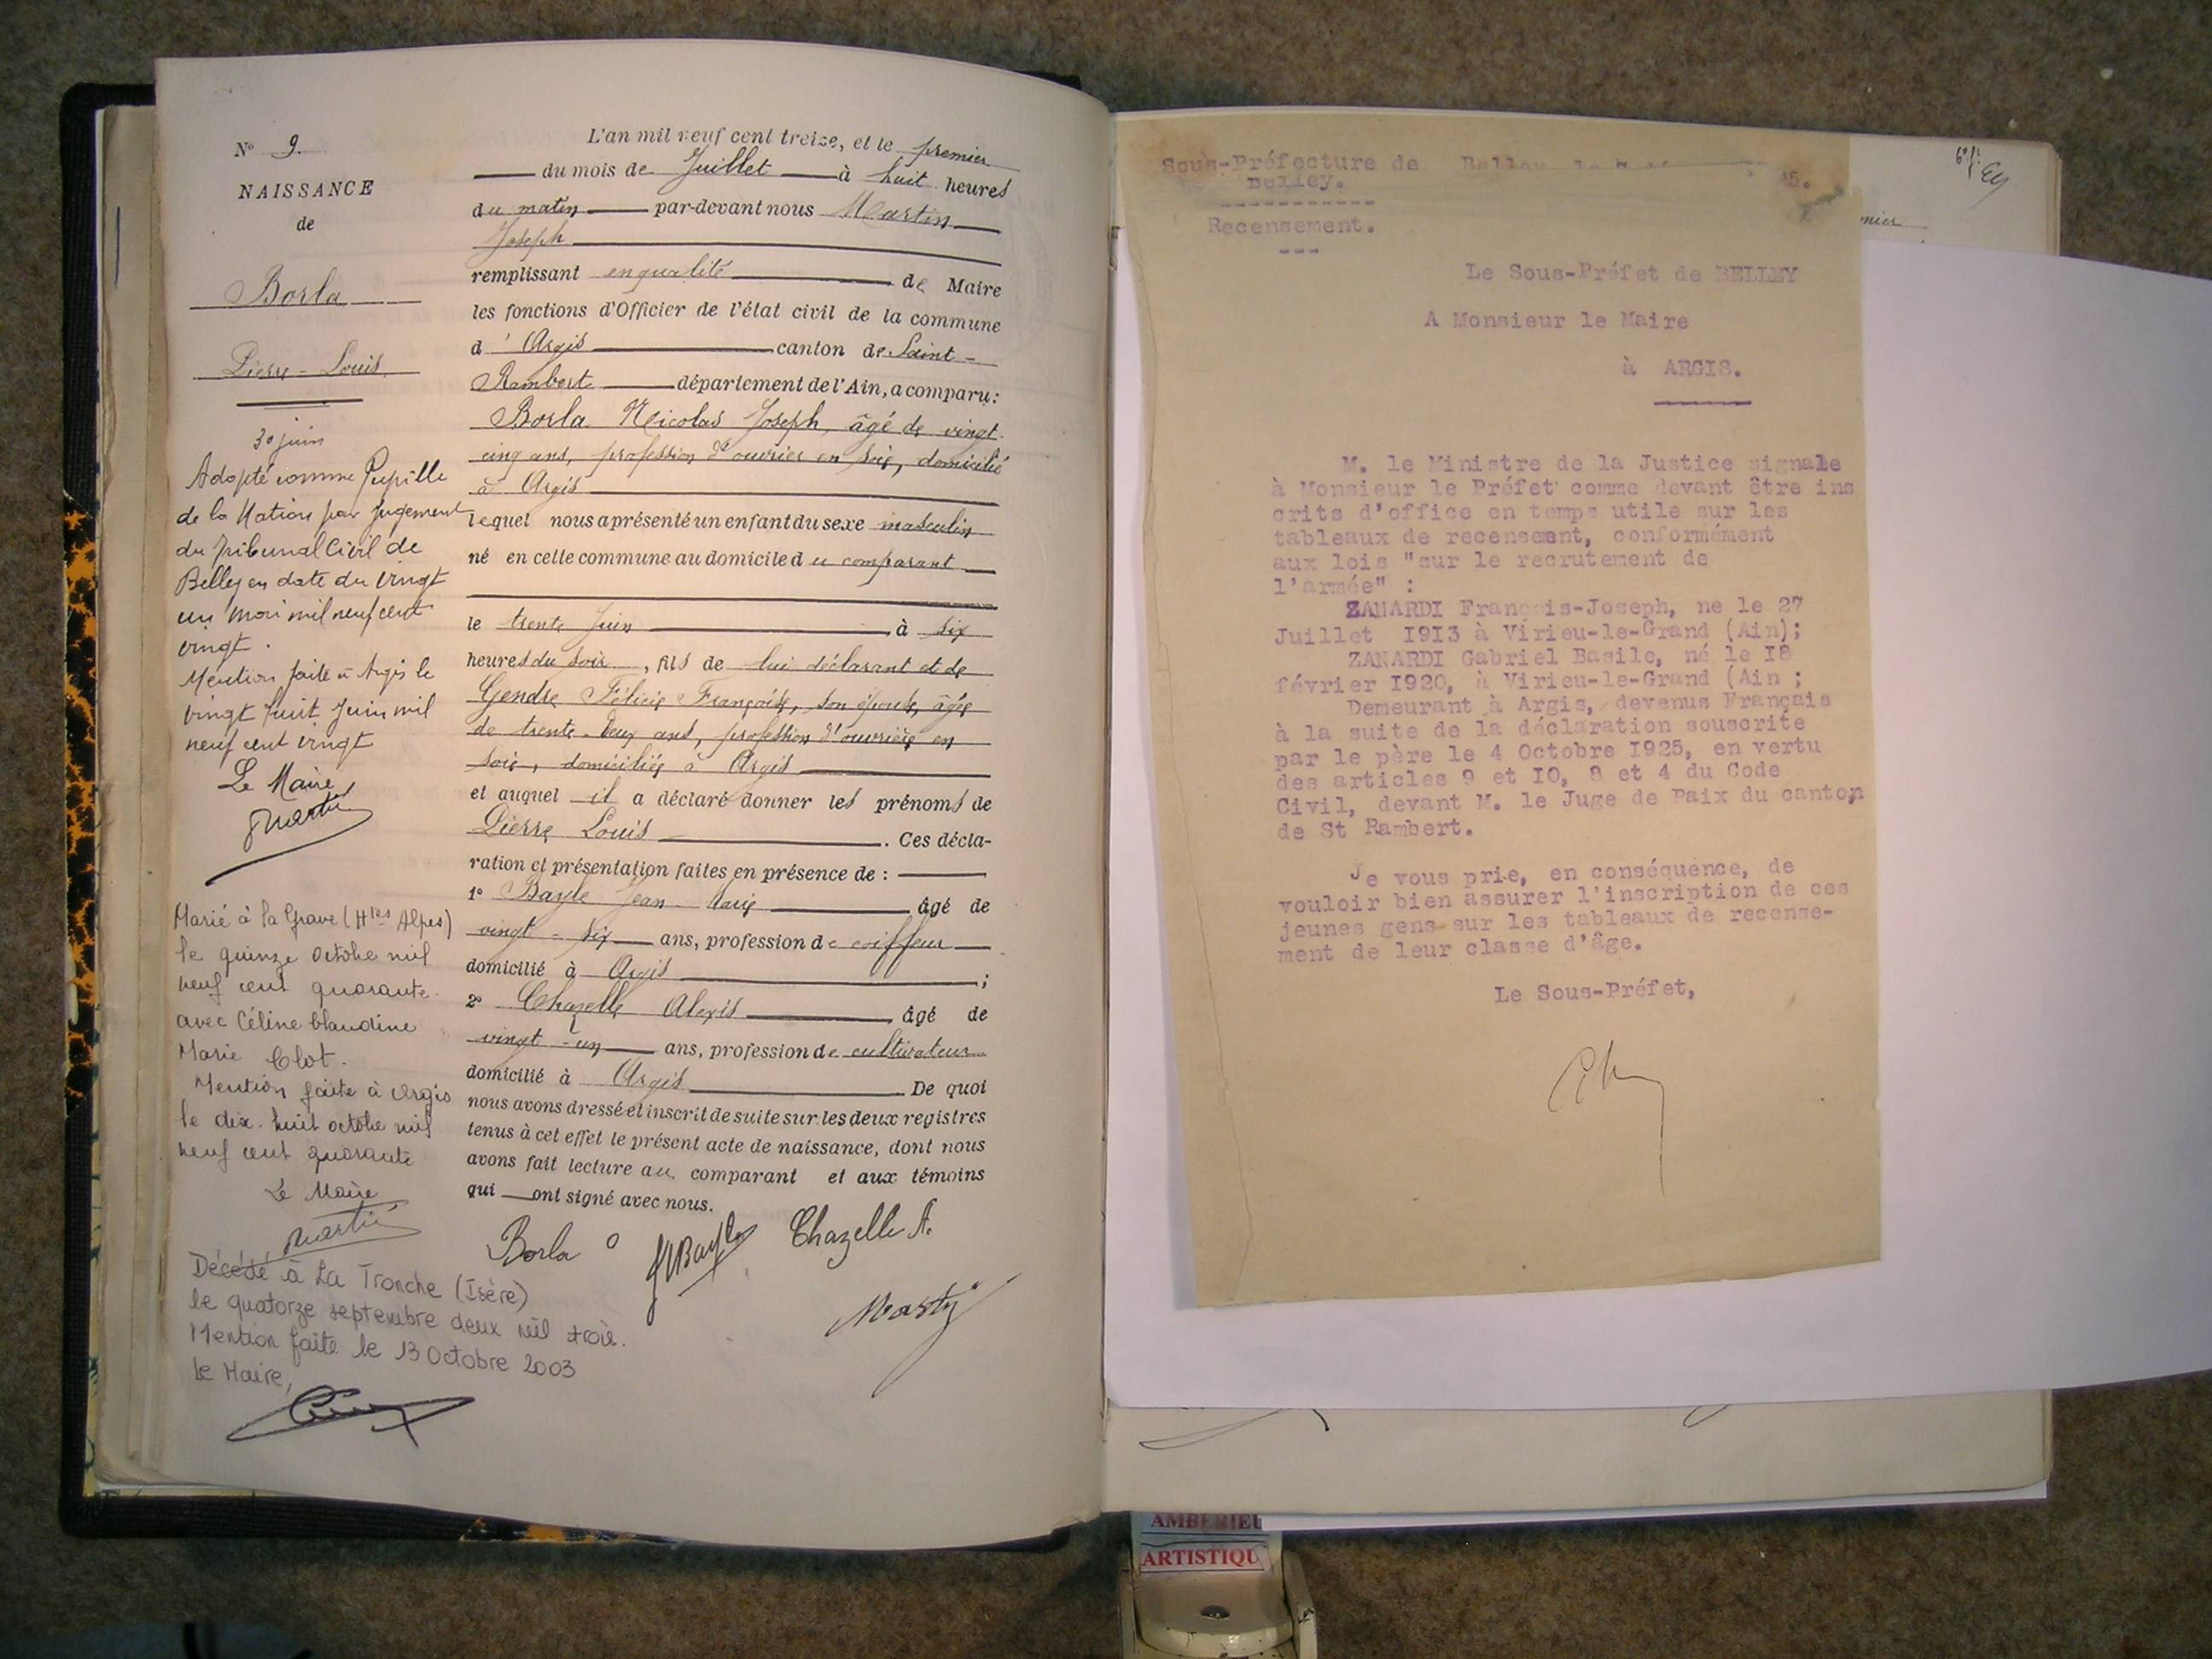 N° 9.
NAISSANCE
de
Borla
Pierre-Louis
30 juin
Adopté comme Pupille
de la Nation par Jugement
du Tribunal Civil de
Belley en date du vingt
un mai mil neuf cent
vingt.
Mention faite à Argis le
vingt huit Juin mil
neuf cent vingt
Le Maire
Martin
Marié à la Grave (Htes Alpes)
le quinze octobre mil
neuf cent quarante.
avec Céline Claudine
Marie Clot.
Mention faite à Argis
le dix-huit octobre mil
neuf cent quarante
Le Maire
Martin
Décédé à La Tronche (Isère)
le quatorze septembre deux mil trois.
Mention faite le 13 Octobre 2003
Le Maire,
L'an mil neuf cent treize, et le premier
du mois de Juillet à huit heures
du matin par-devant nous Martin
Joseph
remplissant en qualité de Maire
les fonctions d'Officier de l'état civil de la commune
d'Argis canton de Saint-
Rambert département de l'Ain, a comparu:
Borla Nicolas Joseph, âgé de vingt-
cinq ans, profession d'ouvrier en soie, domicilié
à Argis
lequel nous a présenté un enfant du sexe masculin
né en cette commune au domicile du comparant
le trente juin à six
heures du soir, fils de lui déclarant et de
Gendre Félicie Françoise, son épouse, âgée
de trente-deux ans, profession d'ouvrière en
soie, domiciliée à Argis
et auquel il a déclaré donner les prénoms de
Pierre Louis. Ces décla-
ration et présentation faites en présence de :
1° Bayle Jean Marie âgé de
vingt-six ans, profession de coiffeur
domicilié à Argis ;
2° Chazelle Alexis, âgé de
vingt-un ans, profession de cultivateur
domicilié à Argis De quoi
nous avons dressé et inscrit de suite sur les deux registres
tenus à cet effet le présent acte de naissance, dont nous
avons fait lecture au comparant et aux témoins
qui ont signé avec nous.
Borla
Bayle
Chazelle A.
Martin
Sous-Préfecture de Belley
Belley. 45.
Recensement.
Le Sous-Préfet de BELLEY
A Monsieur le Maire
à ARGIS.
M. le Ministre de la Justice signale
à Monsieur le Préfet comme devant être ins
crits d'office en temps utile sur les
tableaux de recensemnt, conformément
aux lois "sur le recrutement de
l'armée" :
ZANARDI François-Joseph, ne le 27
Juillet 1913 à Virieu-le-Grand (Ain);
ZANARDI Gabriel Basile, né le 18
février 1920, à Virieu-le-Grand (Ain ;
Demeurant à Argis, devenus Français
à la suite de la déclaration souscrite
par le père le 4 Octobre 1925, en vertu
des articles 9 et 10, 8 et 4 du Code
Civil, devant M. le Juge de Paix du canton
de St Rambert.
Je vous prie, en conséquence, de
vouloir bien assurer l'inscription de ces
jeunes gens sur les tableaux de recense-
ment de leur classe d'âge.
Le Sous-Préfet,
mier
AMBERIEU
ARTISTIQU